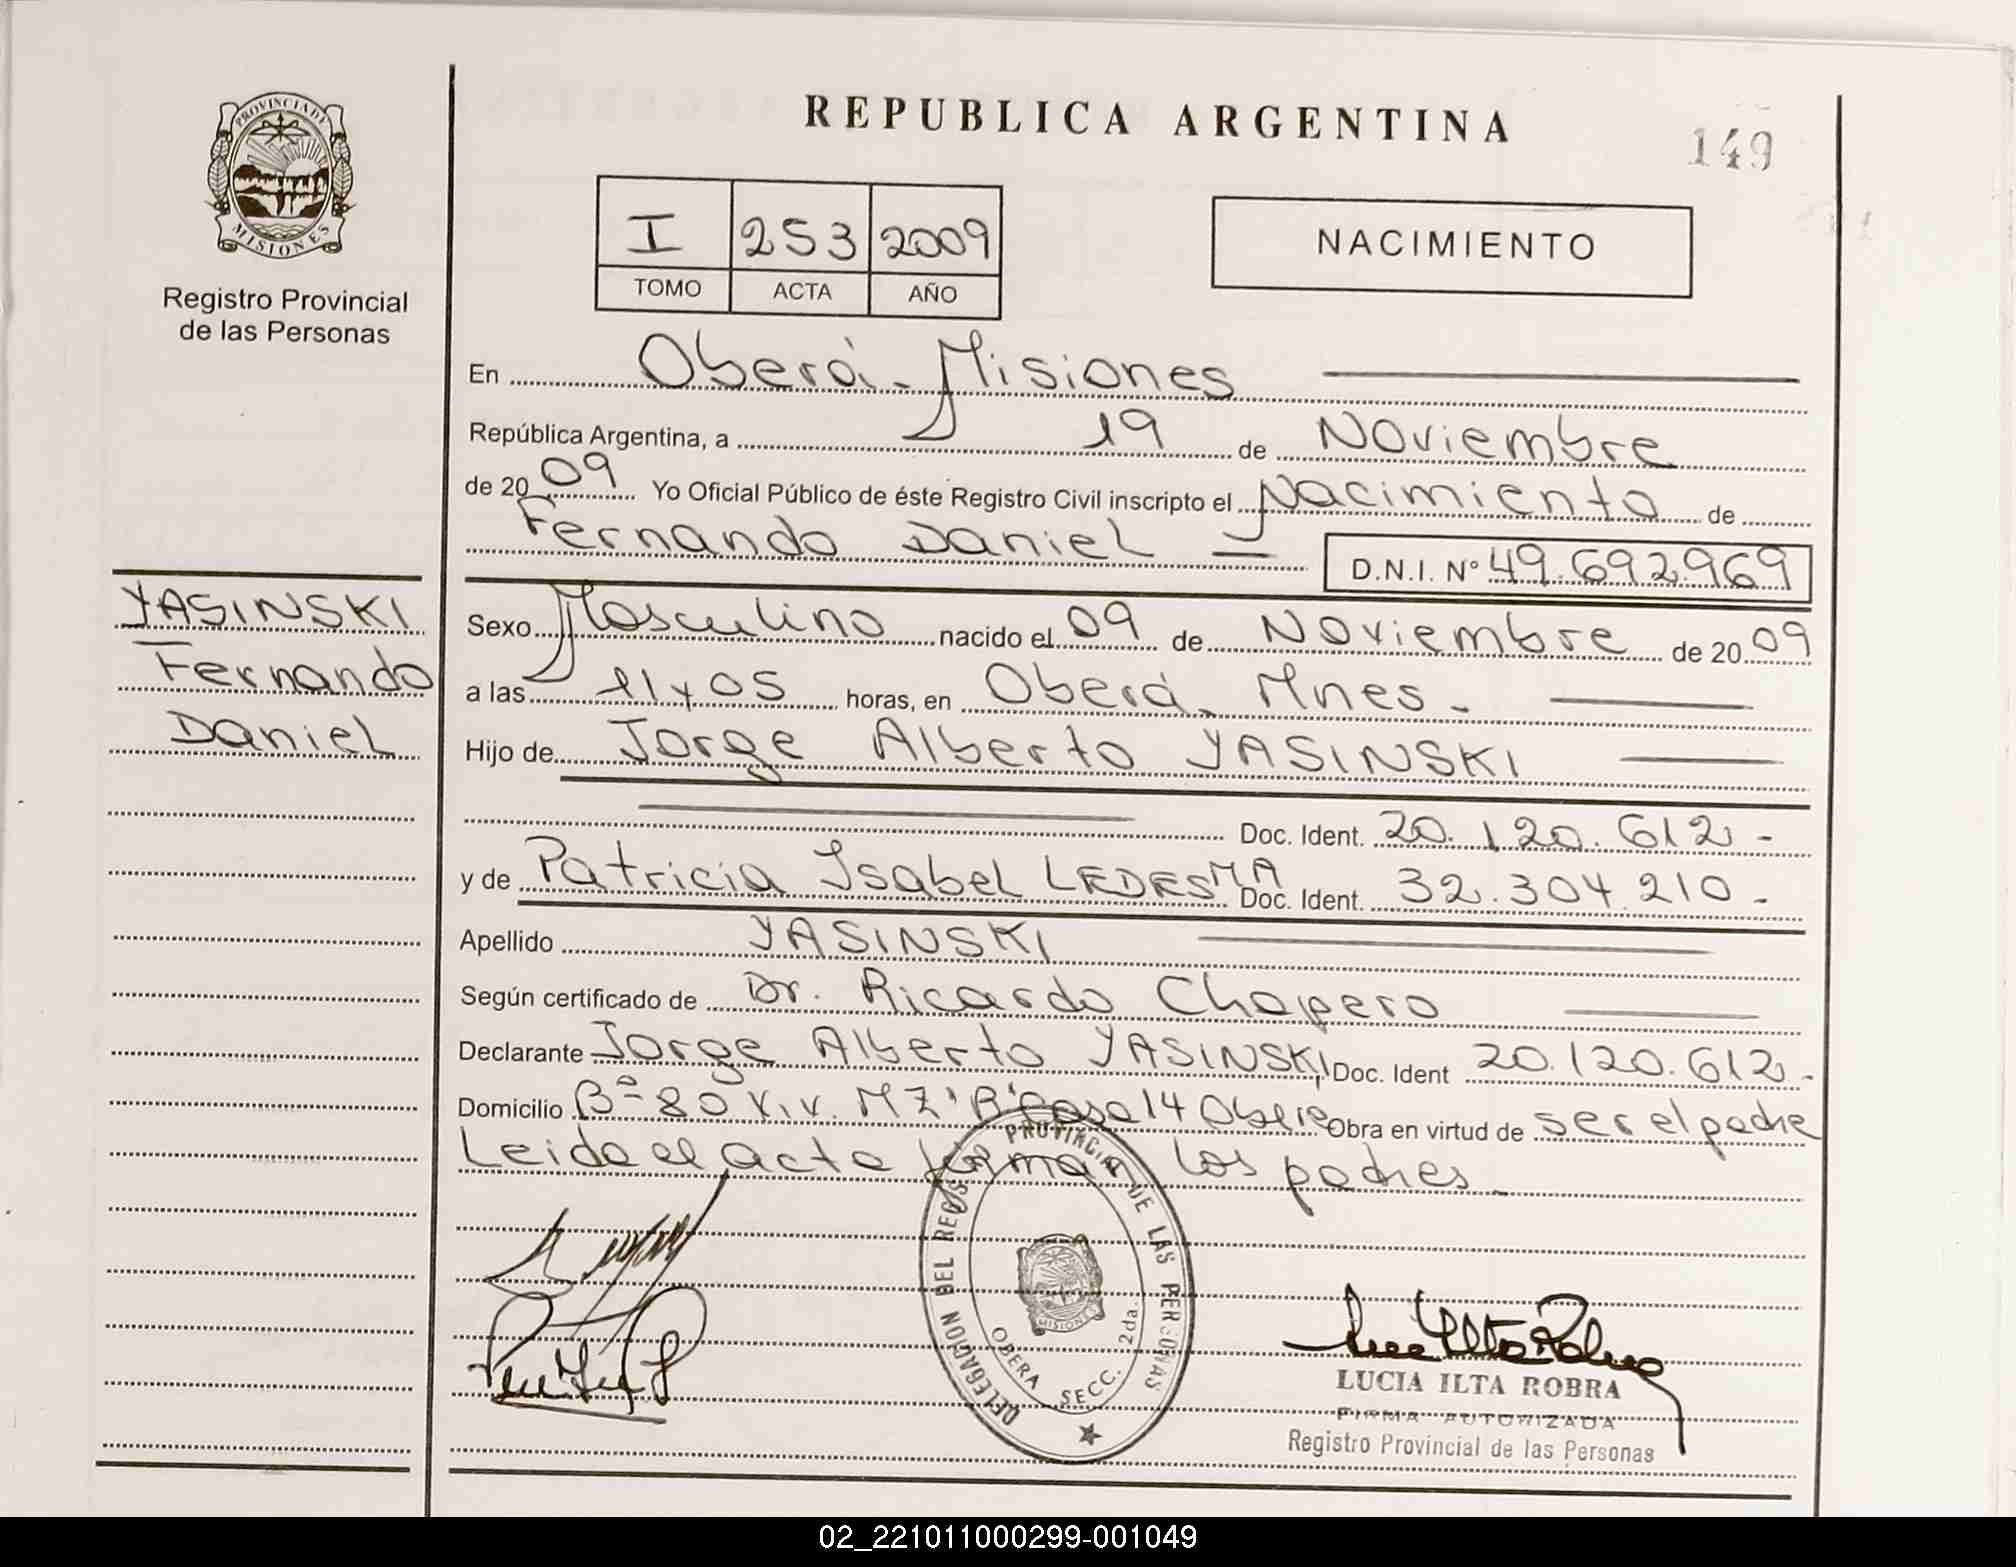 REPUBLICA ARGENTINA
149
PROVINCIA DE
MISIONES
Registro Provincial
de las Personas
I 253 2009
TOMO ACTA AÑO
NACIMIENTO
En Oberá - Misiones
República Argentina, a 19 de Noviembre
de 2009 Yo Oficial Público de éste Registro Civil inscripto el Nacimiento de
Fernando Daniel — D.N.I. N° 49.692.969
YASINSKI
Fernando
Daniel
Sexo Masculino nacido el 09 de Noviembre de 2009
a las 11 y 05 horas, en Oberá. Mnes.-
Hijo de Jorge Alberto YASINSKI
Doc. Ident. 20.120.612-
y de Patricia Isabel LEDESMA Doc. Ident. 32.304.210-
Apellido YASINSKI
Según certificado de Dr. Ricardo Chapero
Declarante Jorge Alberto YASINSKI Doc. Ident 20.120.612.-
Domicilio Bº 80 Viv. MZ 'B' Casa 14 Obra en virtud de ser el padre
Leida el acta firman los padres-
DELEGACION DEL REGISTRO PROVINCIAL DE LAS PERSONAS
MISIONES
OBERA SECC. 2da.
LUCIA ILTA ROBRA
FIRMA AUTORIZADA
Registro Provincial de las Personas
02_221011000299-001049